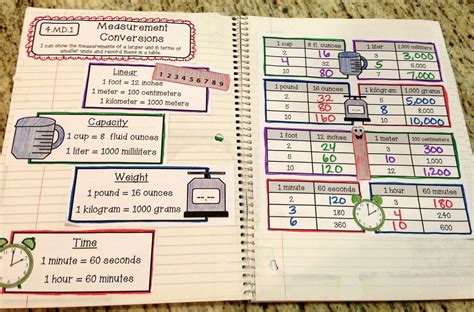 4.MD.1
Measurement
Conversions
I can show the measurements of a larger unit in terms of
smaller units and record these in a table.
Linear
1 foot = 12 inches
1 meter = 100 centimeters
1 kilometer = 1000 meters
1 2 3 4 5 6 7 8 9
Capacity
1 cup = 8 fluid ounces
1 liter = 1000 milliliters
Weight
1 pound = 16 ounces
1 kilogram = 1000 grams
Time
1 minute = 60 seconds
1 hour = 60 minutes
1 cup 8 fl. ounces
2 16
4 32
10 80
1 liter 1,000 milliliters
3 3,000
5 5,000
7 7,000
1 pound 16 ounces
2 32
5 80
10 160
1 kilogram 1,000 grams
5 5,000
8 8,000
10 10,000
1 foot 12 inches
2 24
5 60
10 120
1 meter 100 centimeters
3 300
10 1,000
12 1,200
1 minute 60 seconds
2 120
3 180
6 360
1 hour 60 minutes
3 180
4 240
10 600